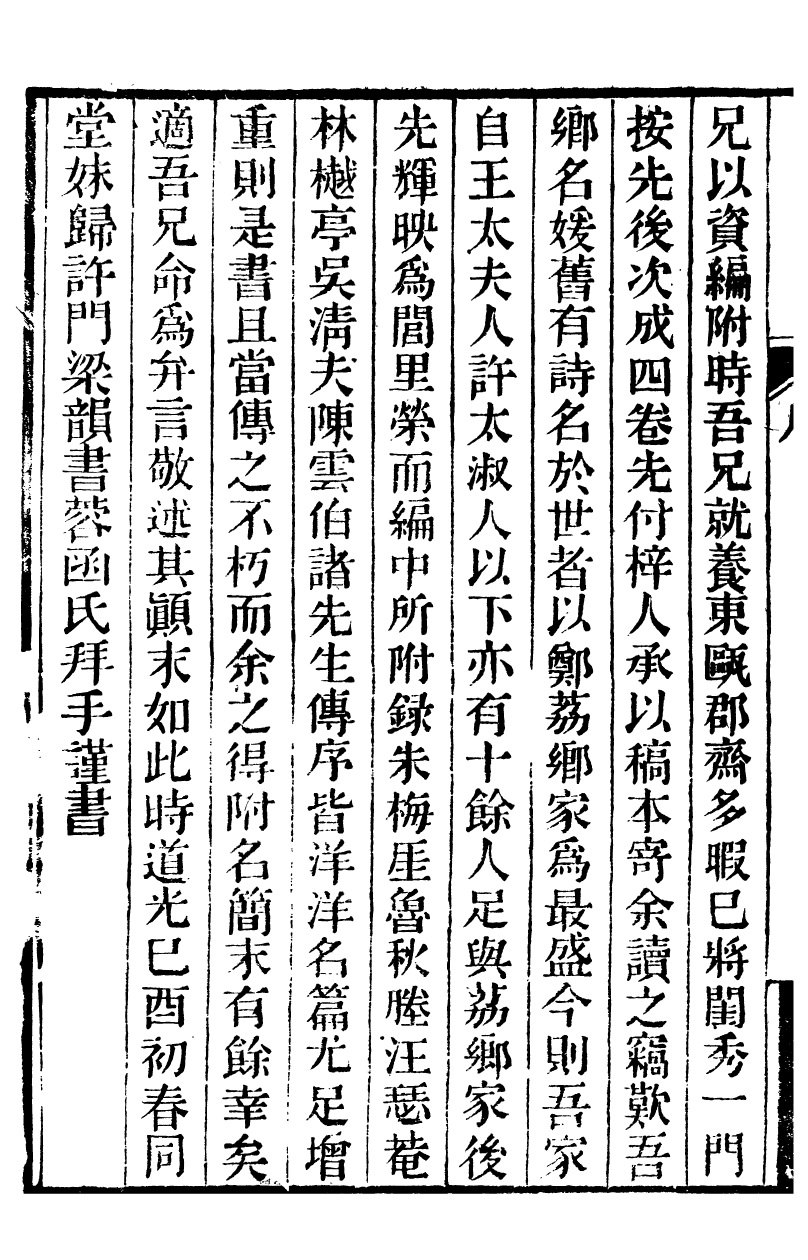 兄以資編附時吾兄就養東甌郡齋多暇已將閨秀一門
按先後次成四卷先付梓人承以稿本寄余讀之竊歎吾
鄉名媛舊有詩名於世者以鄭荔鄉家爲最盛今則吾家
自王太夫人許太淑人以下亦有十餘人足與荔鄉家後
先輝映爲閭里榮而編中所附録朱梅崖魯秋塍汪瑟菴
林樾亭吳清夫陳雲伯諸先生傳序皆洋洋名篇尤足增
重則是書且當傳之不朽而余之得附名簡末有餘幸矣
適吾兄命爲弁言敬述其顚末如此時道光己酉初春同
堂妹歸許門梁韻書蓉函氏拜手謹書